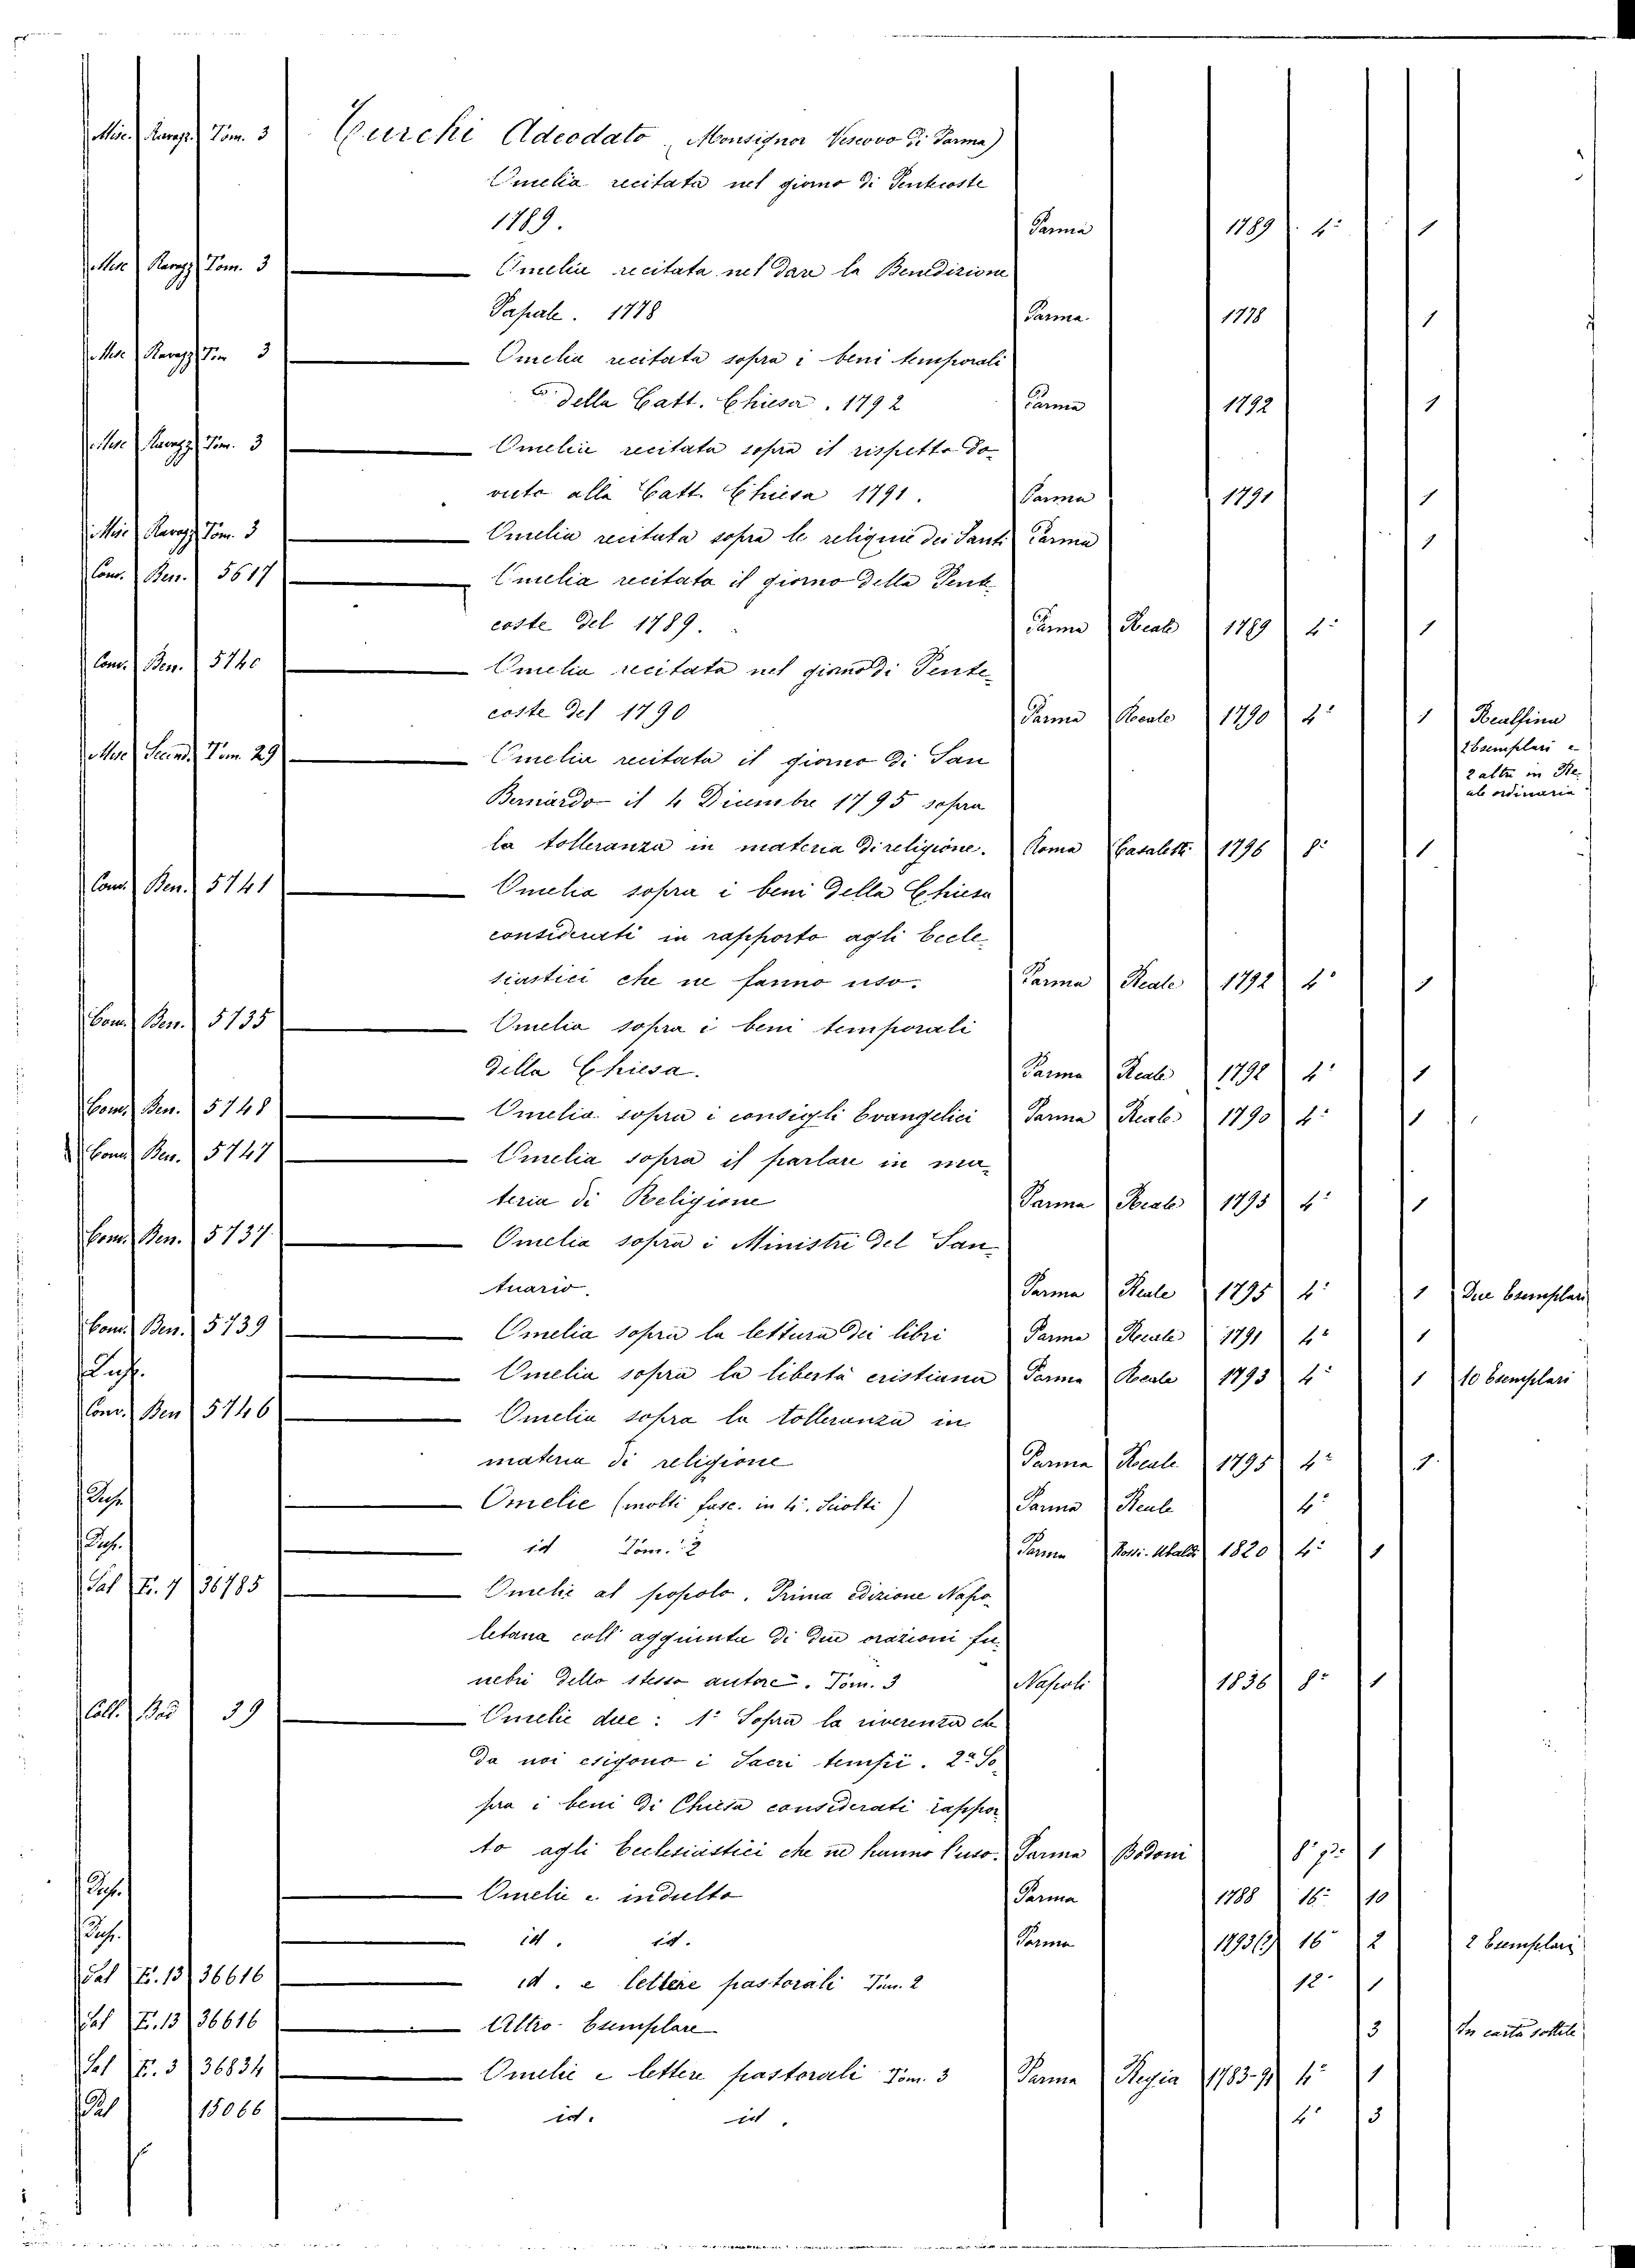 Misc. Ravazz. Tom. 3 Turchi Adeodato (Monsignor Vescovo di Parma)
Omelia recitata nel giorno di Pentecoste
1789. Parma 1789 4° 1
Misc Ravazz Tom. 3 Omelia recitata nel dare la Benedizione
Papale. 1778 Parma 1778 1
Misc Ravazz Tom 3 Omelia recitata sopra i beni temporali
della Catt. Chiesa. 1792 Parma 1792 1
Misc Ravazz Tom. 3 Omelia recitata sopra il rispetto do-
vuto alla Catt. Chiesa 1791. Parma 1791 1
Misc Ravazz Tom. 3 Omelia recitata sopra le reliquie dei Santi Parma 1
Conv. Ben. 5617 Omelia recitata il giorno della Pente
coste del 1789. Parma Reale 1789 4° 1
Conv. Ben. 5740 Omelia recitata nel giorno di Pente-
coste del 1790 Parma Reale 1790 4° 1 Realfina
Misc Tom. 29 Omelia recitata il giorno di San
Esemplari e
2 altri in Re-
Bernardo il 4 Dicembre 1795 sopra
ale ordinaria
la tolleranza in materia di religione. Roma Casalett. 1796 8° 1
Conv. Ben. 5741 Omelia sopra i beni della Chiesa
considerati in rapporto agli Eccle-
siastici che ne fanno uso. Parma Reale 1792 4° 1
Conv. Ben. 5735 Omelia sopra i beni temporali
della Chiesa. Parma Reale 1792 4° 1
Conv. Ben. 5748 Omelia sopra i consigli Evangelici Parma Reale 1790 4° 1
Conv. Ben. 5747 Omelia sopra il parlare in ma-
teria di Religione Parma Reale 1795 4° 1
Conv. Ben. 5737 Omelia sopra i Ministri del San-
tuario. Parma Reale 1795 4° 1 Due Esemplari
Conv. Ben. 5739 Omelia sopra la lettura dei libri Parma Reale 1791 4° 1
Dup. Omelia sopra la libertà cristiana Parma Reale 1793 4° 1 10 Esemplari
Conv. Ben 5746 Omelia sopra la tolleranza in
materia di religione Parma Reale 1795 4° 1
Dup. Omelie (molti fasc. in 4°. Sciolti) Parma Reale 4°
Dup. id Tom. 2 Parma Rossi-Ubaldi 1820 4° 1
Pal F. 7 36785 Omelie al popolo. Prima edizione Napo-
letana coll' aggiunta di due orazioni fu-
nebri dello stesso autore. Tom. 3 Napoli 1836 8° 1
Coll. Bod 39 Omelie due: 1° Sopra la riverenza che
da noi esigono i Sacri tempii. 2° So
pra i beni di Chiesa considerati rappor
to agli Ecclesiastici che ne hanno l'uso. Parma Bodoni 8° p° 1
Dup. Omelie e indulto Parma 1788 16° 10
Dup. id. id. Parma 1793(?) 16° 2 2 Esemplari
Pal F. 13 36616 id. e lettere pastorali Tom. 2 12° 1
Pal F. 13 36616 Altro Esemplare 3 In carta sottile
Pal F. 3 36834 Omelie e lettere pastorali Tom. 3 Parma Regia 1783-91 4° 1
Pal 15066 id. id. 4° 3